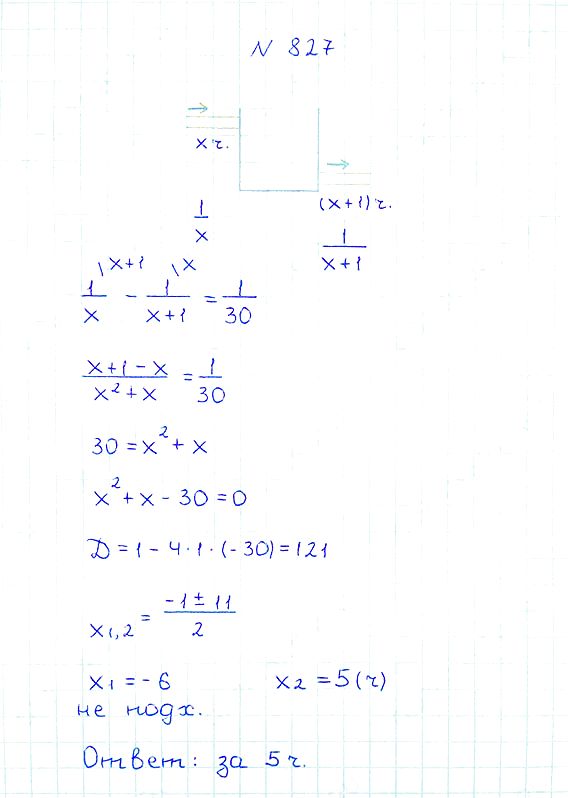 N 827
x ч.
(x+1) ч.
1/x
1/(x+1)
1/x \x+1 − 1/(x+1) \x = 1/30
(x+1−x)/(x²+x) = 1/30
30 = x² + x
x² + x − 30 = 0
D = 1 − 4·1·(−30) = 121
x1,2 = (−1 ± 11)/2
x1 = −6 x2 = 5 (ч)
не подх.
Ответ: за 5 ч.